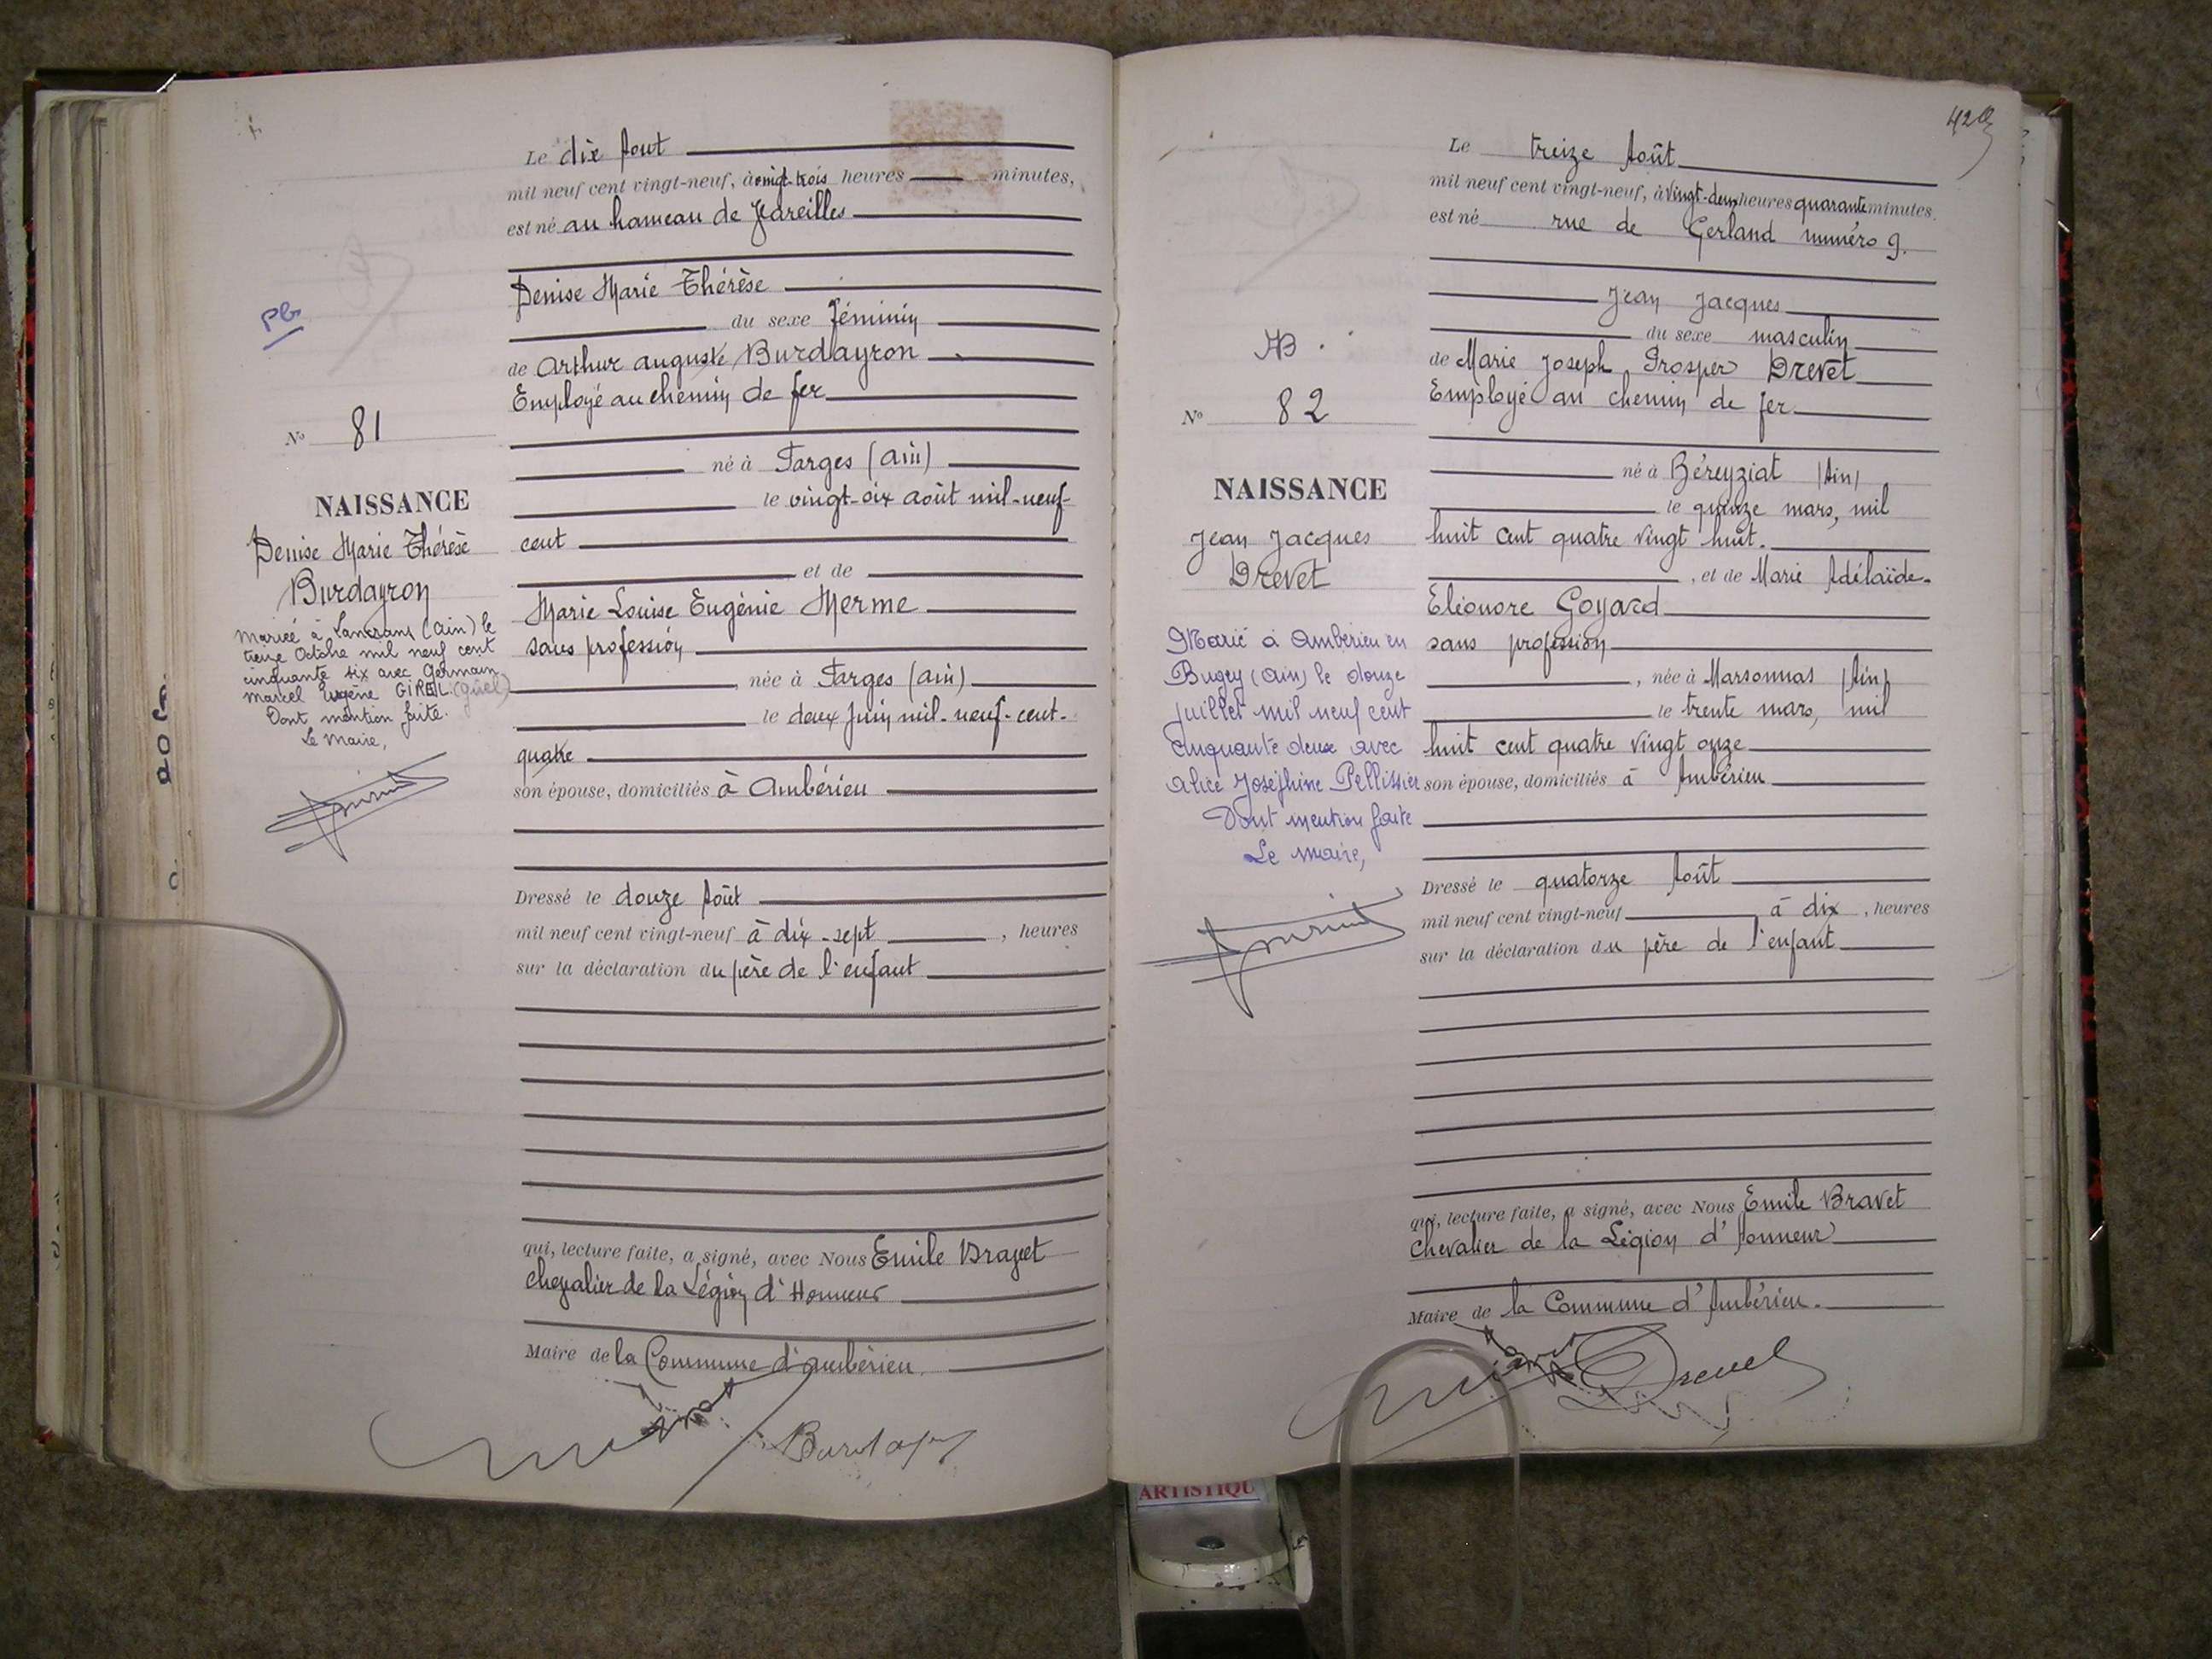 PB
N° 81
NAISSANCE
Denise Marie Thérèse
Burdayron
Mariée à Lancrans (Ain) le
treize Octobre mil neuf cent
cinquante six avec Germain
Marcel Eugène GIREL. (Girel)
Dont mention faite.
Le Maire,
Le dix Août
mil neuf cent vingt-neuf, à vingt-trois heures minutes,
est né au hameau de Vareilles
Denise Marie Thérèse
du sexe féminin
de Arthur Auguste Burdayron
Employé au chemin de fer
né à Farges (Ain)
le vingt-six août mil-neuf-
cent
et de
Marie Louise Eugénie Merme
sans profession
, née à Farges (Ain)
le deux Juin mil-neuf-cent-
quatre
son épouse, domiciliés à Ambérieu
Dressé le douze Août
mil neuf cent vingt-neuf à dix-sept , heures
sur la déclaration du père de l'enfant
qui, lecture faite, a signé, avec Nous Emile Bravet
chevalier de la Légion d'Honneur
Maire de la Commune d'Ambérieu.
Burdayron
42
N° 82
NAISSANCE
Jean Jacques
Drevet
Marié à Ambérieu en
Bugey (Ain) le douze
juillet mil neuf cent
cinquante deux avec
Alice Joséphine Pellissier
Dont mention faite
Le Maire,
Le treize Août
mil neuf cent vingt-neuf, à vingt-deux heures quarante minutes.
est né rue de Gerland numéro 9.
Jean Jacques
du sexe masculin
de Marie Joseph Prosper Drevet
Employé au chemin de fer
né à Béreyziat (Ain)
le quinze mars, mil
huit cent quatre vingt huit.
, et de Marie Adélaïde-
Eléonore Goyard
sans profession
, née à Marsonnas (Ain)
le trente mars, mil
huit cent quatre vingt onze
son épouse, domiciliés à Ambérieu
Dressé le quatorze Août
mil neuf cent vingt-neuf à dix , heures
sur la déclaration du père de l'enfant
qui, lecture faite, a signé, avec Nous Emile Bravet
chevalier de la Légion d'Honneur
Maire de la Commune d'Ambérieu.
Drevet
ARTISTIQU